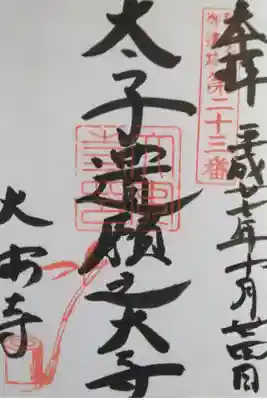 奉拝 平成廿七年十月廿四日
第二十三番
太子遺願之大寺
大安寺